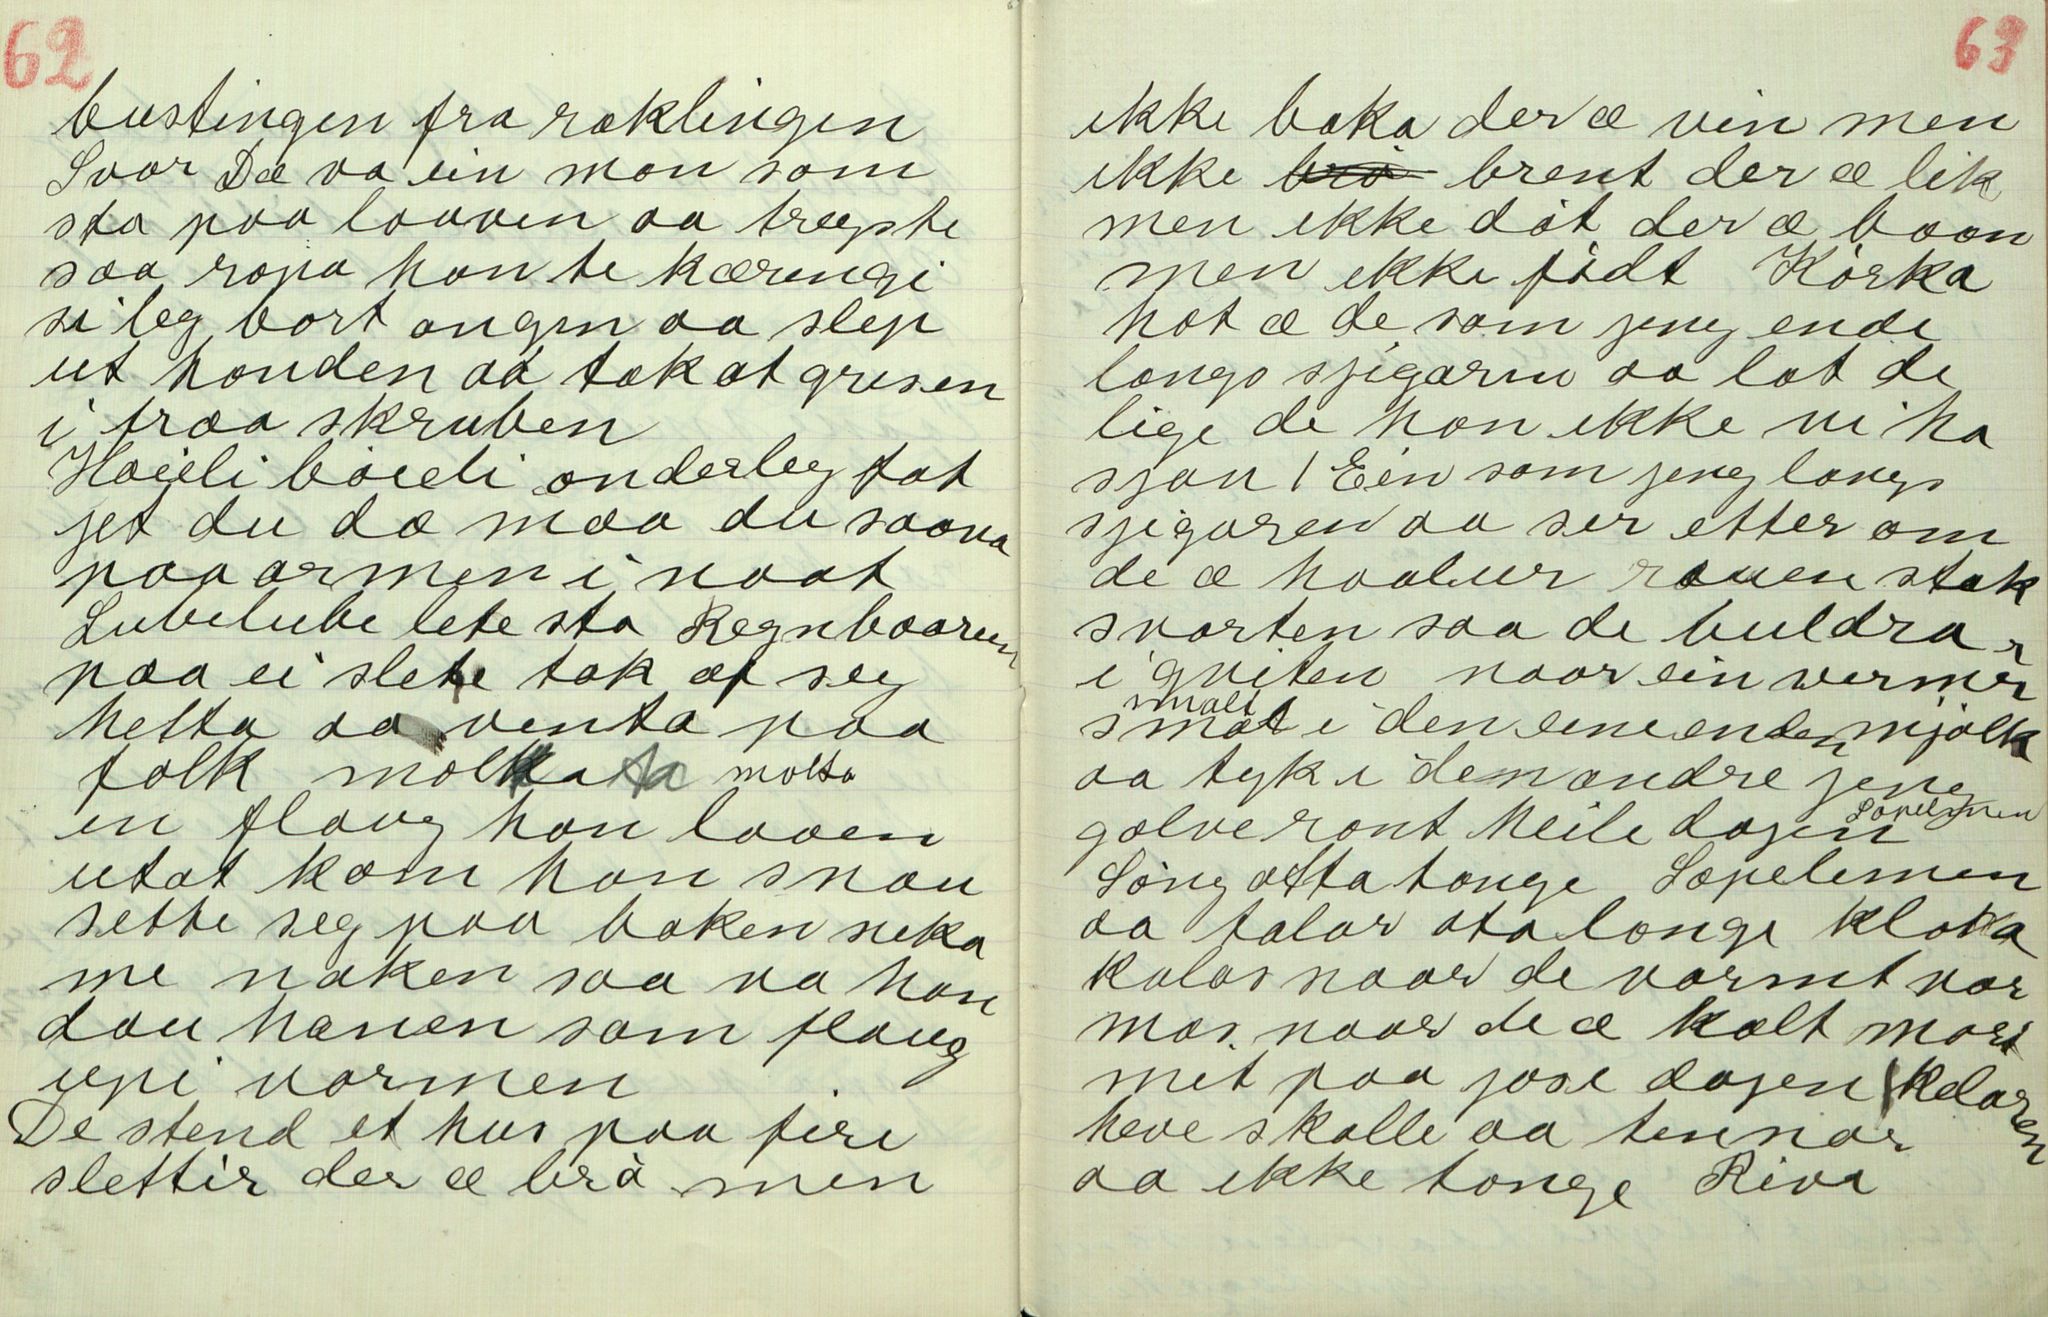 62
bustingen fra raklingen
Svar Dæ va ein man som
sto paa laaven aa træste
saa ropa han te kæringi
si leg bort angen aa slep
ut honden aa tak at grisen
i fraa skruben
Hoieli boieli onderleg fat
jet du dæ maa du saava
paa armen i naat
Lubelube lete sta Regnbaaren
paa ei slete tok af seg
hetta aa venta paa
folk molta
en flaug han laaen
utat kom han snau
sette seg paa baken neka
me naken saa va han
dau hanen som flaug
upi varmen
De stend et hus paa fire
slettir der æ brò men
63
ikke baka der æ vin men
ikke brent der æ lik
men ikke dòt der æ baan
men ikke fòdt Kòrka
hot æ de som jeng ende
langs sjigarin aa lat de
lige de han ikke vi ha
sjau / Ein som jeng langs
sjigaren aa ser etter om
de æ haalur rauen stak
svarten saa de buldrar
i gviten naar ein vermer
smalt
smat i den eine enden mjòlk
aa tyk i den andre jeng
golve ront heile dagen
Sòng atta tonge Sopelimen
aa talar ata longe kloka
Kalas naar de varmt var
mas naar de æ kalt mars
met paa jase dagen / Kelaren
heve skalle aa tennar
aa ikke tonge Riva